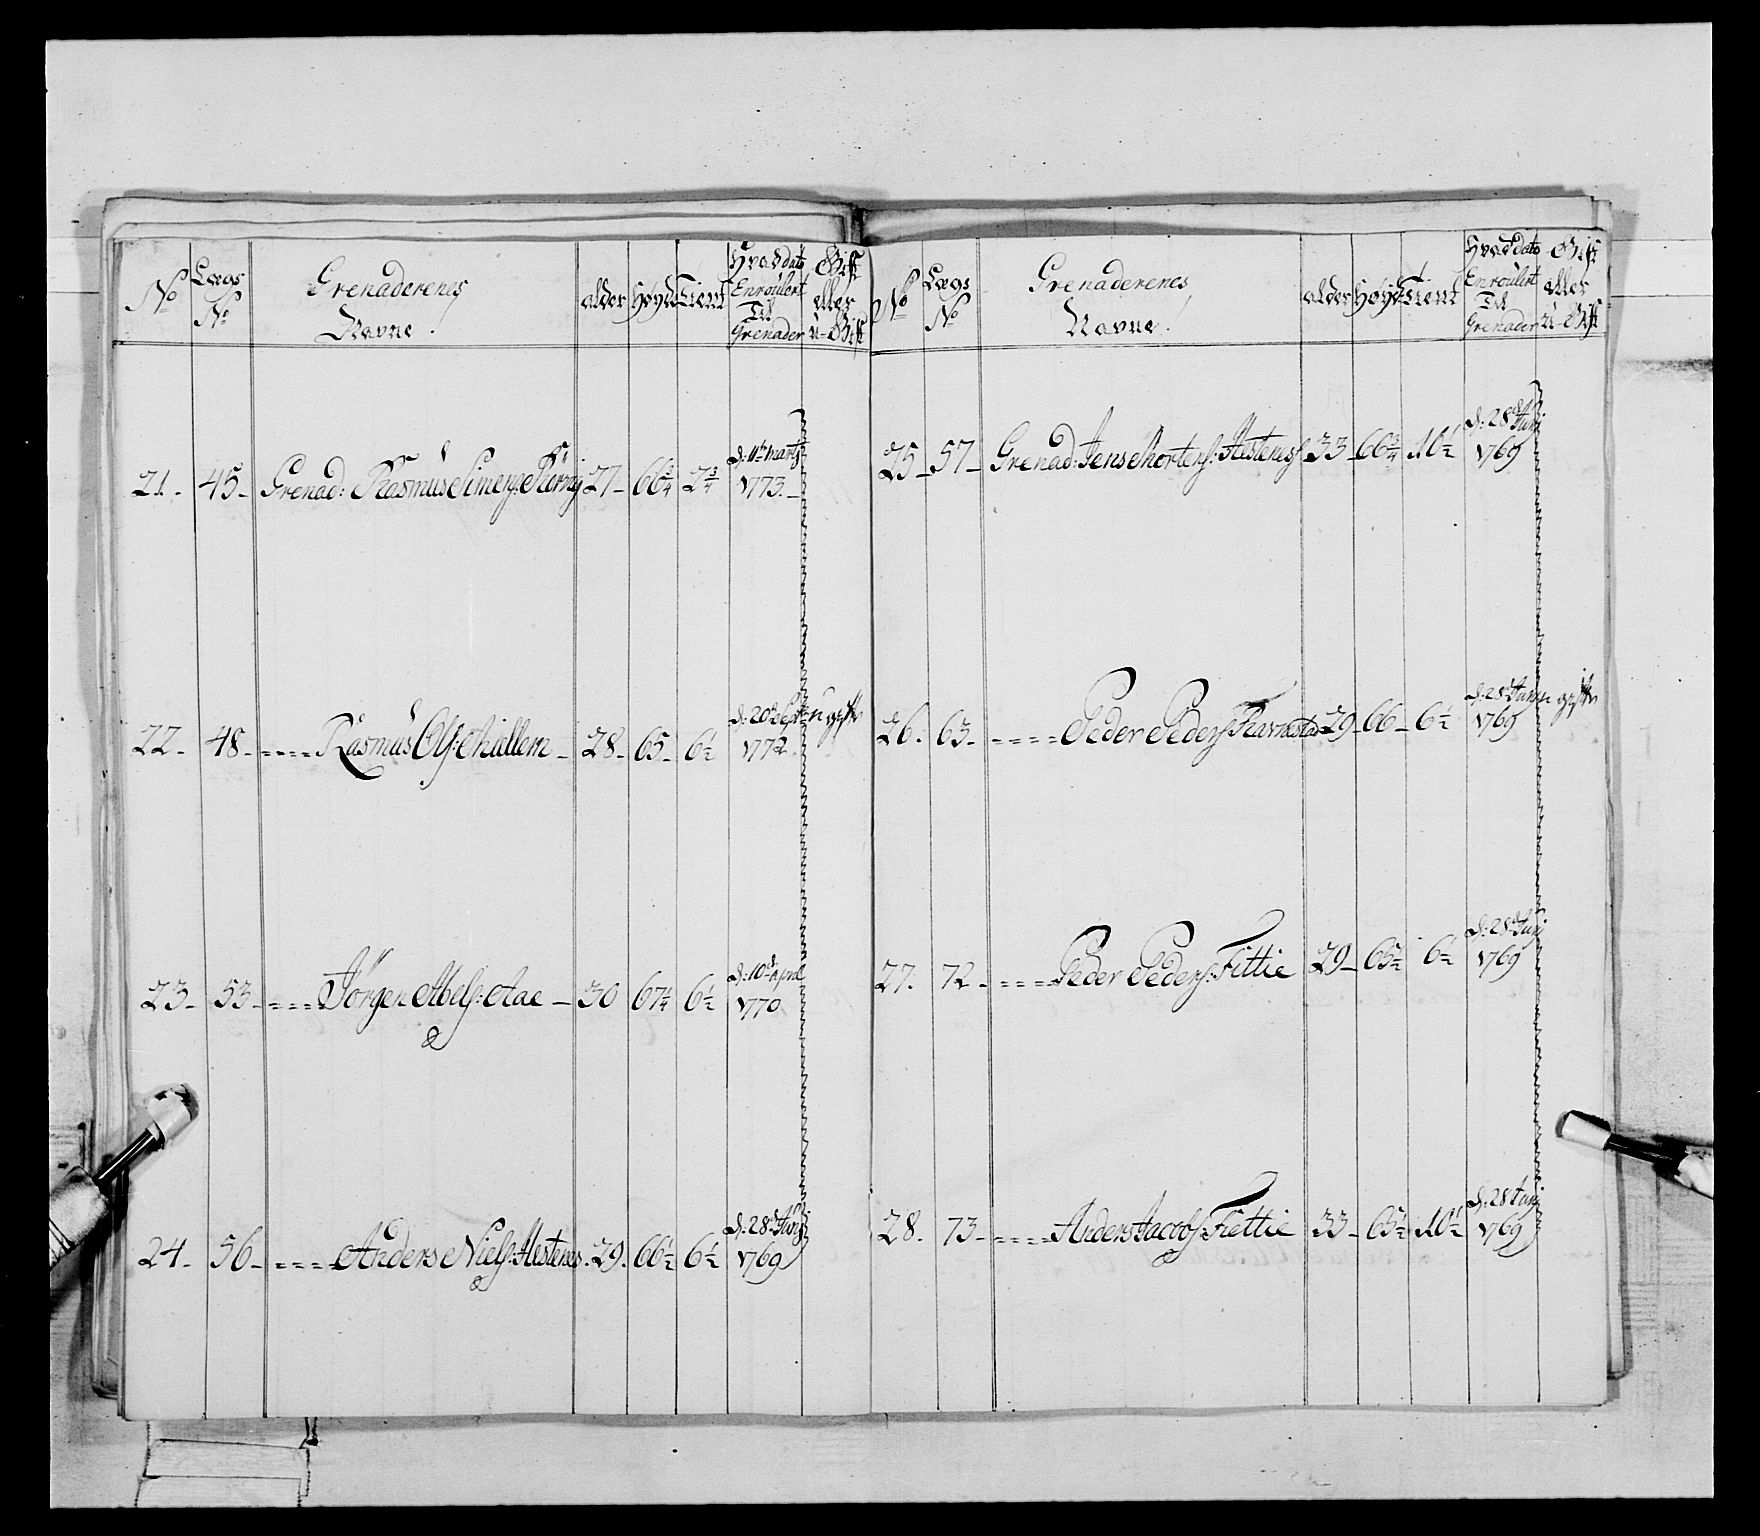 No Lægs No Grenaderenes Navne. alder Høyde Tient Hvad dato Enroulert Til Grenader Gift eller u-Gift
21. 45. Grenad: Rasmus Simens: 27 66 3/4 2 3/4 d: 11te Marty 1773.
22. 48. Rasmus Ols: 28 65 6 1/2 d: 20de Sept: 1772. u gift
23. 53. Jørgen Abels: Aae 30 67 1/4 6 1/2 d: 10de April 1770
24. 56. Anders Niels: Hestenes 29 66 1/2 6 1/2 d: 28de Junij 1769
No Lægs No Grenaderenes Navne. alder Høyde Tient Hvad dato Enroulert Til Grenader Gift eller U-Gift
25 57 Grenad: Jens Mortens: Hestenes 33 66 3/4 10 1/2 d: 28de Junij 1769
26. 63. Peder Peders: 29 66 6 1/2 d: 28de Junij 1769 u gift
27. 72 Peder Peders: Fittie 29 65 1/2 6 1/2 d: 28de Junij 1769
28. 73 Anders Jacobs: Fiettie 33 65 1/2 10 1/2 d: 28 Junij 1769